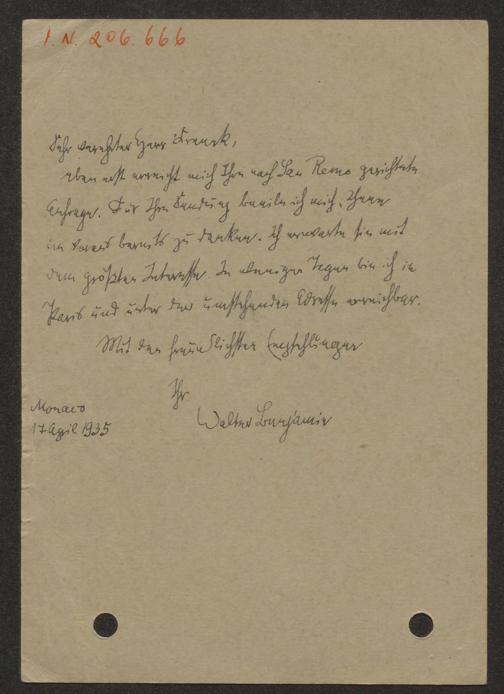 I. N. 206.666
Sehr verehrter Herr Franck,
eben erst erreicht mich Ihre nach San Remo gerichtete
Anfrage. Für Ihre Sendung beeile ich mich, Ihnen
im voraus bereits zu danken. Ich erwarte sie mit
dem größten Interesse. In wenigen Tagen bin ich in
Paris und unter der umstehenden Adresse erreichbar.
Mit den freundlichsten Empfehlungen
Ihr
Walter Benjamin
Monaco
17 April 1935